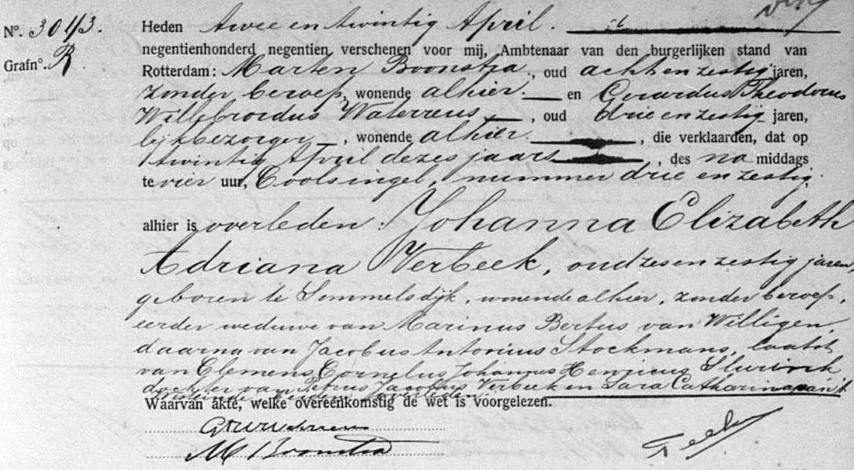 Nº. 3043. Heden twee en twintig April.
negentienhonderd negentien verschenen voor mij, Ambtenaar van den burgerlijken stand van
Grafnº. R Rotterdam: Marten Boonstra, oud acht en zestig jaren,
zonder beroep, wonende alhier en Gerardus Theodorus
Willebrordus Waterreus, oud drie en zestig jaren,
lijkbezorger, wonende alhier, die verklaarden, dat op
twintig April dezes jaars, des na middags
te vier uur, Coolsingel, nummer drie en zestig
alhier is overleden: Johanna Elizabeth
Adriana Verbeek, oud zes en zestig jaren,
geboren te Sommelsdijk, wonende alhier, zonder beroep,
eerder weduwe van Marinus Bertus van Willigen,
daarna van Jacobus Antonius Stockmans, laatst
van Clemens Cornelus Johannes Henricus
dochter van Petrus Jacobus Verbeek en Sara Catharina
Waarvan akte, welke overeenkomstig de wet is voorgelezen.
M Boonstra